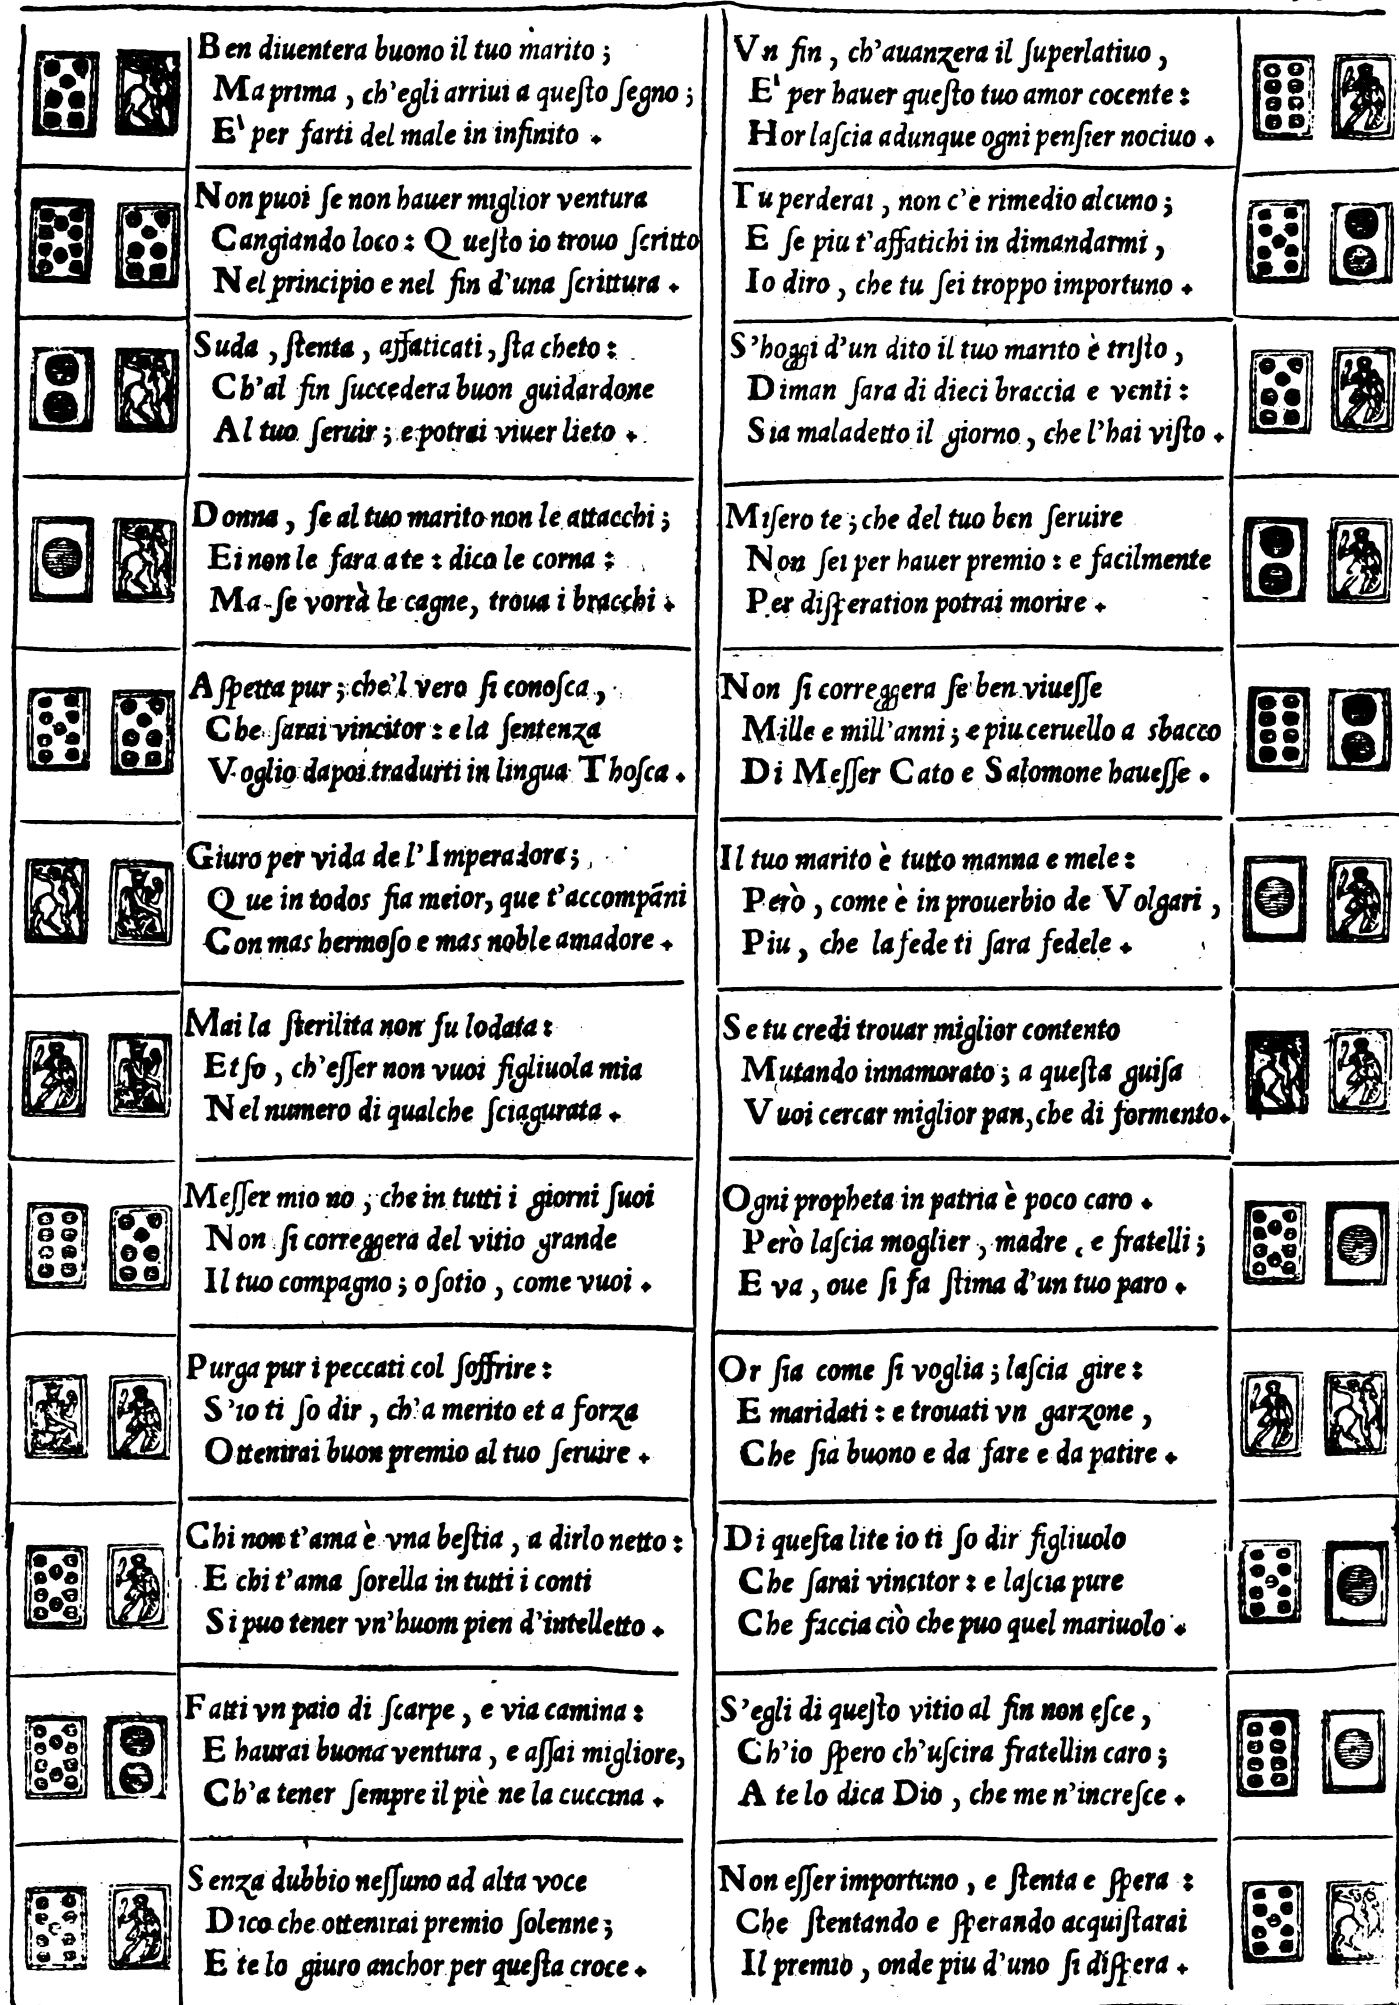 Ben diuentera buono il tuo marito ;
Ma prima , ch'egli arriui a queſto ſegno ;
E' per farti del male in infinito .
Non puoi ſe non hauer miglior ventura
Cangiando loco : Queſto io trouo ſcritto
Nel principio e nel fin d'una ſcrittura .
Suda , ſtenta , affaticati , ſta cheto :
Ch'al fin ſuccedera buon guidardone
Al tuo ſeruir ; e potrai viuer lieto .
Donna , ſe al tuo marito non le attacchi ;
Ei non le fara a te : dico le corna :
Ma ſe vorrà le cagne, troua i bracchi .
Aſpetta pur ; che'l vero ſi conoſca ,
Che ſarai vincitor : e la ſentenza
Voglio dapoi tradurti in lingua Thoſca .
Giuro per vida de l'Imperadore ;
Que in todos ſia meior, que t'accompāni
Con mas hermoſo e mas noble amadore .
Mai la ſterilita non fu lodata :
Et ſo , ch'eſſer non vuoi figliuola mia
Nel numero di qualche ſciagurata .
Meſſer mio no , che in tutti i giorni ſuoi
Non ſi correggera del vitio grande
Il tuo compagno ; o ſotio , come vuoi .
Purga pur i peccati col ſoffrire :
S'io ti ſo dir , ch'a merito et a forza
Ottenirai buon premio al tuo ſeruire .
Chi non t'ama è vna beſtia , a dirlo netto :
E chi t'ama ſorella in tutti i conti
Si puo tener vn'huom pien d'intelletto .
Fatti vn paio di ſcarpe , e via camina :
E haurai buona ventura , e aſſai migliore,
Ch'a tener ſempre il piè ne la cuccina .
Senza dubbio neſſuno ad alta voce
Dico che ottenirai premio ſolenne ;
E te lo giuro anchor per queſta croce .
Vn fin , ch'auanzera il ſuperlatiuo ,
E' per hauer queſto tuo amor cocente :
Hor laſcia adunque ogni penſier nociuo .
Tu perderai , non c'e rimedio alcuno ;
E ſe piu t'affatichi in dimandarmi ,
Io diro , che tu ſei troppo importuno .
S'hoggi d'un dito il tuo marito è triſto ,
Diman ſara di dieci braccia e venti :
Sia maladetto il giorno , che l'hai viſto .
Miſero te ; che del tuo ben ſeruire
Non ſei per hauer premio : e facilmente
Per diſperation potrai morire .
Non ſi correggera ſe ben viueſſe
Mille e mill'anni ; e piu ceruello a sbacco
Di Meſſer Cato e Salomone haueſſe .
Il tuo marito è tutto manna e mele :
Però , come è in prouerbio de Volgari ,
Piu , che la fede ti ſara fedele .
Se tu credi trouar miglior contento
Mutando innamorato ; a queſta guiſa
Vuoi cercar miglior pan, che di formento.
Ogni propheta in patria è poco caro .
Però laſcia moglier , madre , e fratelli ;
E va , oue ſi fa ſtima d'un tuo paro .
Or ſia come ſi voglia ; laſcia gire :
E maridati : e trouati vn garzone ,
Che ſia buono e da fare e da patire .
Di queſta lite io ti ſo dir figliuolo
Che ſarai vincitor : e laſcia pure
Che faccia ciò che puo quel mariuolo .
S'egli di queſto vitio al fin non eſce ,
Ch'io ſpero ch'uſcira fratellin caro ;
A te lo dica Dio , che me n'increſce .
Non eſſer importuno , e ſtenta e ſpera :
Che ſtentando e ſperando acquiſtarai
Il premio , onde piu d'uno ſi diſpera .